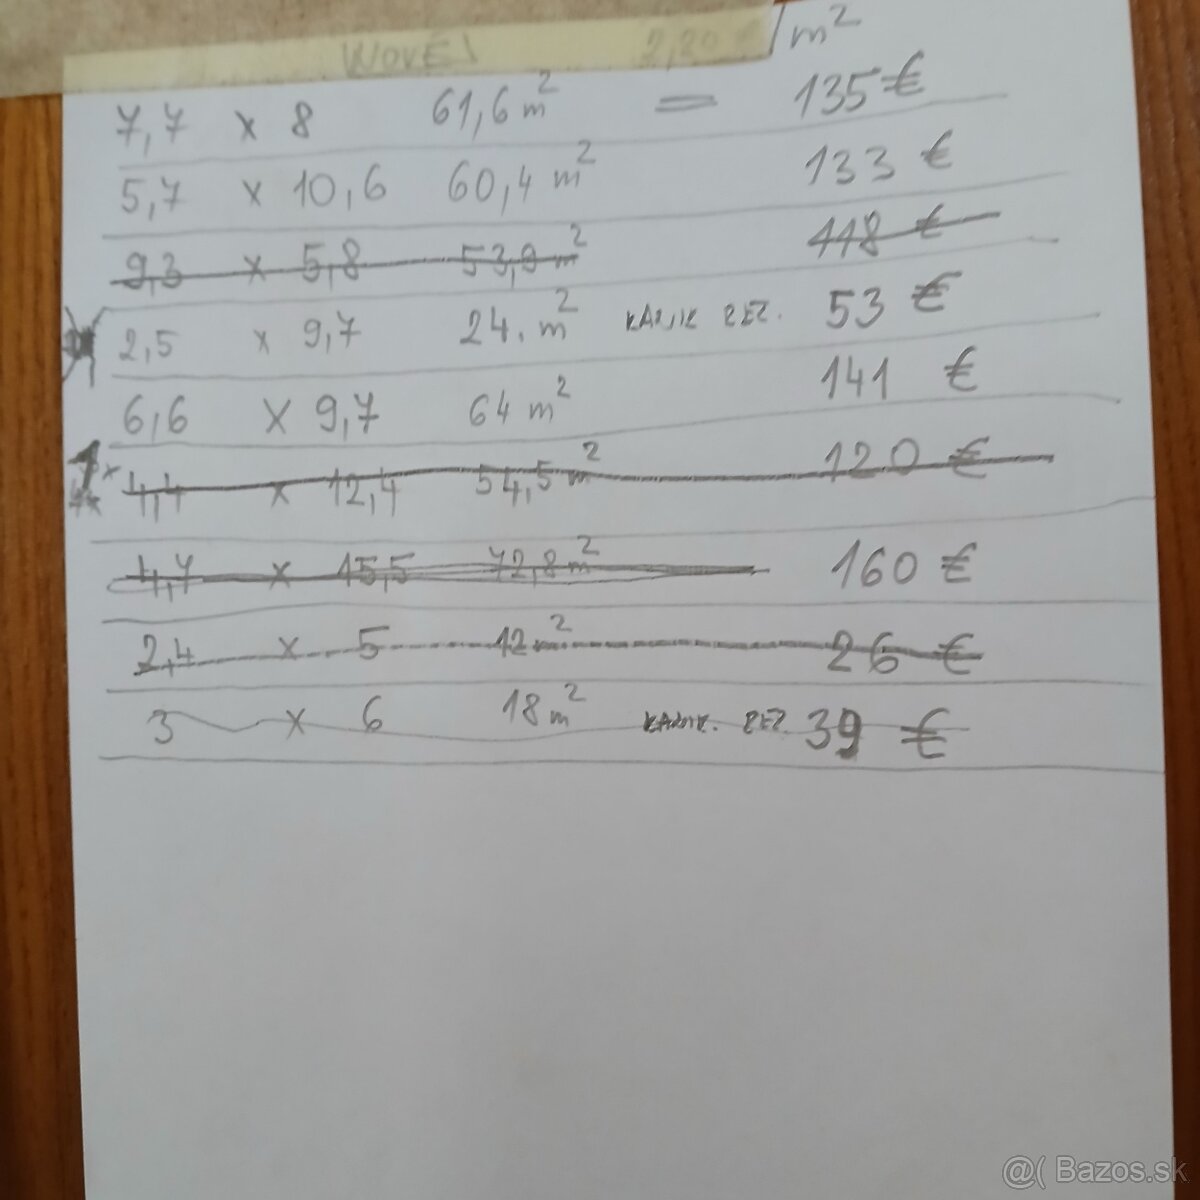 NOVÉ! 2,20 € / m²
7,7 x 8 61,6 m² = 135 €
5,7 x 10,6 60,4 m² 133 €
9,3 x 5,8 53,9 m² 118 €
2,5 x 9,7 24. m² REZ. 53 €
6,6 x 9,7 64 m² 141 €
4,4 x 12,4 54,5 m² 120 €
4,7 x 15,5 72,8 m² 160 €
2,4 x 5 12 m² 26 €
3 x 6 18 m² REZ. 39 €
@( Bazos.sk